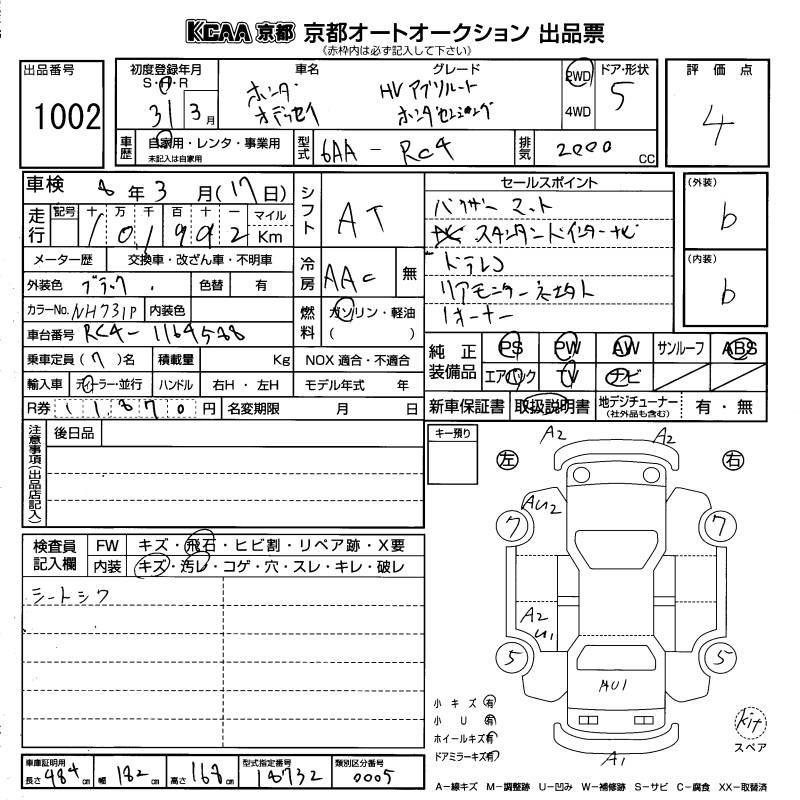 KCAA 京都 京都オートオークション 出品票
(赤枠内は必ず記入して下さい)
出品番号 1002
初度登録年月 S・H・R 31年 3月
車名 ホンダ オデッセイ
グレード HV アブソルート ホンダセンシング
2WD 4WD
ドア・形状 5
評価点 4
車歴 自家用・レンタ・事業用 未記入は自家用
型式 6AA - RC4
排気 2000 CC
車検 8年 3月(17日)
シフト AT
セールスポイント
バイザー マット
スタンダードインターナビ
ドラレコ
リアモニター
1オーナー
(外装) b
(内装) b
走行 記号 十 万 千 百 十 一 マイル Km
101992
メーター歴 交換車・改ざん車・不明車
冷房 AAC 無
外装色 ブラック 色替 有
カラーNo. NH731P 内装色
燃料 ガソリン・軽油 ( )
車台番号 RC4-1164588
乗車定員(7)名 積載量 Kg NOX 適合・不適合
輸入車 ディーラー・並行 ハンドル 右H・左H モデル年式 年
R券 11870円 名変期限 月 日
純正装備品 PS PW AW サンルーフ ABS
エアバック TV ナビ
新車保証書 取扱説明書 地デジチューナー (社外品も含む) 有・無
注意事項(出品店記入) 後日品
キー預り
左 右
A2 A2
AU2
7 7
A2
U1
5 5
AU1
A1
検査員記入欄 FW キズ・飛石・ヒビ割・リペア跡・X要
内装 キズ・汚レ・コゲ・穴・スレ・キレ・破レ
シートシワ
小キズ 有
小U 有
ホイールキズ 有
ドアミラーキズ 有
kit
スペア
車庫証明用 長さ 484cm 幅 182cm 高さ 168cm
型式指定番号 18732
類別区分番号 0005
A－線キズ M－調整跡 U－凹み W－補修跡 S－サビ C－腐食 XX－取替済